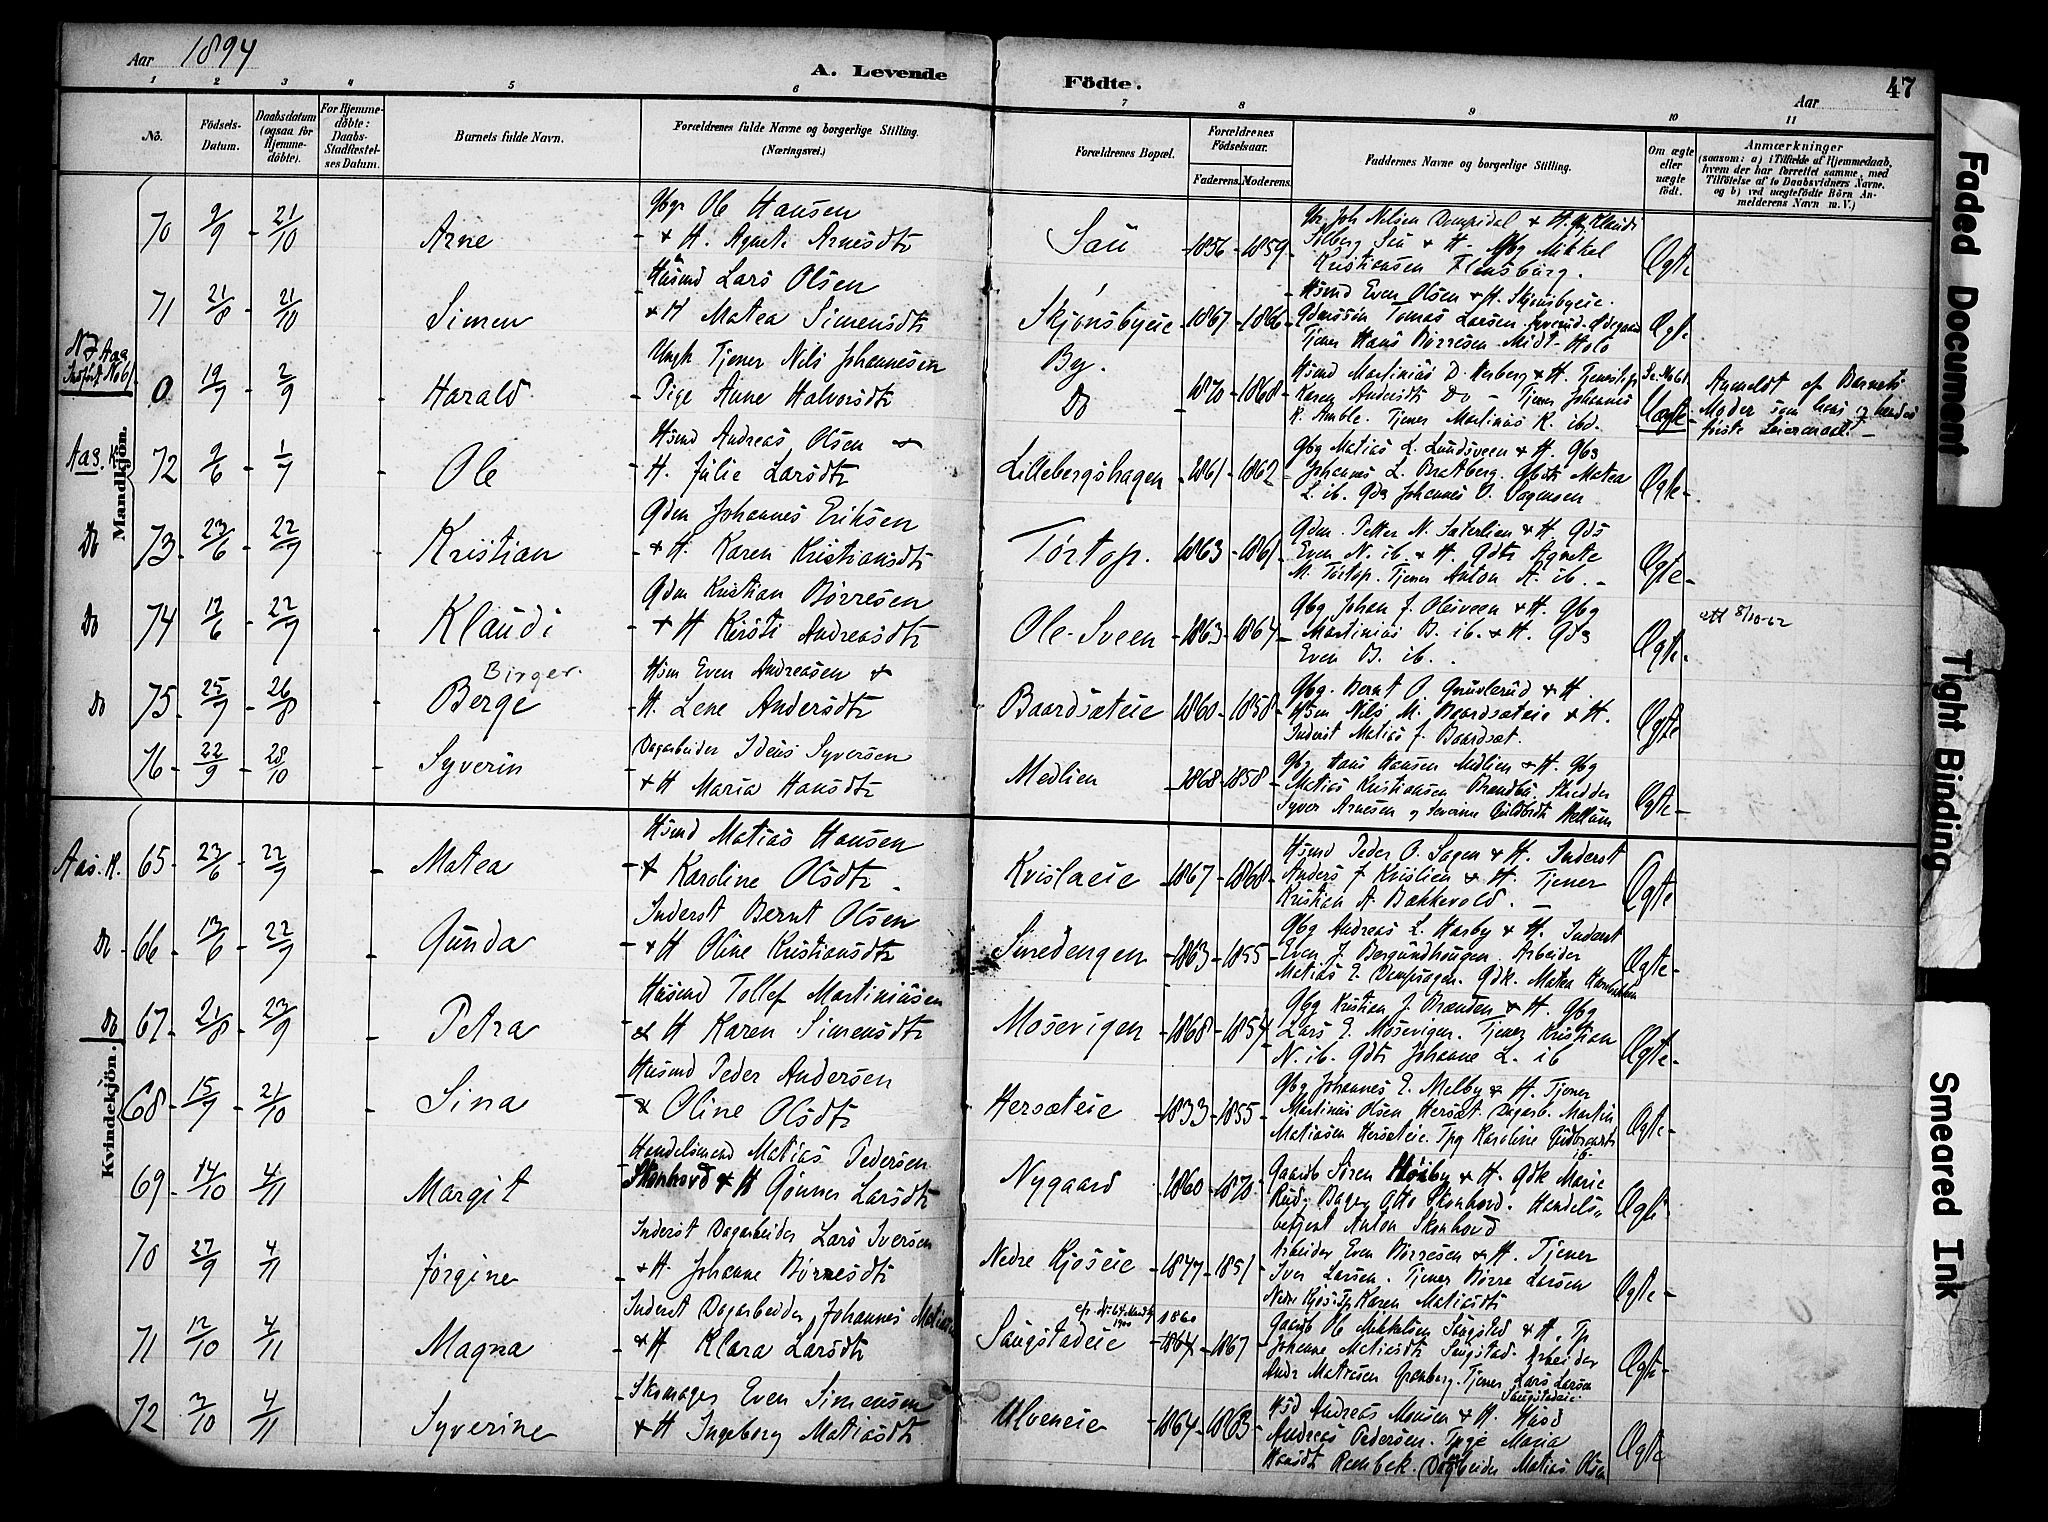 Aar 1894
A. Levende Födte.
Aar
47
1 2 3 4 5 6 7 8 9 10 11
No.
Födsels-Datum.
Daabsdatum (ogsaa för Hjemmedöbte).
For Hjemmedöbte: Daabs-Stadfæstelses Datum.
Barnets fulde Navn.
Forældrenes fulde Navne og borgerlige Stilling. (Næringsvei.)
Forældrenes Bopæl.
Forældrenes Födselsaar.
Faderens. Moderens.
Faddernes Navne og borgerlige Stilling.
Om ægte eller uægte födt.
Anmærkninger
(saasom: a) i Tilfælde af Hjemmedaab, hvem der har forrettet samme, med Tilföielse af to Daabsvidners Navne, og b) ved uægtefödte Börn Anmelderens Navn m. V.)
Mandkjön.
70 9/9 - 21/10 Arne
Gbgr Ole Hansen
+ H. Agnete Arnesdtr
Sau 1856 - 1859
Kristiansen Flensburg.
Ægte
71 21/8 21/10 Simen
Husmd Lars Olsen
+ H Matea Simensdtr
Skjønsbyeie 1867 - 1866
Husmd Even Olsen + H. Skjønsbyeie.
Tjener Hans Børresen Midt-Holo
Ægte
0 19/7 - 2/9 Harald
Ungk. Tjener Nils Johannesen
Pige Anne Halvorsdtr
By.
Do 1870 - 1868
Karen Andersdtr Do - Tjener Johannes
K. Amble. Tjener Martinius K. ibd.
Uægte
Anmeldt af Barnets
Moder som hans og hendes
første Leiermaal.
Aas. K. 72 2/6 - 1/7 Ole
Husmd Andreas Olsen +
H. Julie Larsdtr
Lillebergshagen 1861 - 1862
Gbg Matias L. Lundsveen + H. Gbs
Johannes L. Bratberg. Gbdtr Matea
L. ib. Gds Johannes O. Sogensen
Ægte
Do 73 - 23/6 - 22/7 Kristian
Gdm Johannes Eriksen
+ H. Karen Kristiansdtr
Tørtop. 1863 - 1861
Gdm. Petter N. Sæterlien + H. Gds
Even N. ib. + H. Gdtr Agnete
M. Tørtop. Tjener Anton A. ib. -
Ægte
Do 74 17/6 - 22/7 Klaudi
Gdm Kristian Børresen
+ H Kirsti Andreasdtr
Ole-Sveen 1863 - 1864
Gbg Johan J. Olesveen + H. Gbg
Martinius B. ib. + H. Gds
Even B. ib.
Ægte
att 8/10-62
Do 75 - 25/7 - 26/8 Berge
Birger.
Hsm Even Andreasen +
H. Lene Andersdtr
Baardsæteie 1860 - 1858
Gbg. Bernt O. Gruvlerud + H.
Hsm Nils M. Baardsæteie + H.
Inderst Matias J. Baardsæt.
Ægte
76 - 22/9 - 28/10 Syverin
Dagarbeider Ideus Syversen
+ H Maria Hansdtr
Medlien 1868 - 1858
Gbg Hans Hansen Medlien + H. Gbg
Matias Kristiansen Brandbu. Skredder
Ægte
Kvindekjön.
Aas. K. 65 - 23/6 - 22/7 Matea
Hsmd Matias Hansen
+ Karoline Olsdtr
Kvislaeie 1867 - 1868
Hsmd Peder O. Sagen + H. Inderst
Anders J. Kvislien + H. Tjener
Kristian A. Bakkevold.
Ægte
Do - 66 - 13/6 - 22/7 Gunda
Inderst Bernt Olsen
+ H Oline Kristiansdtr
Smedengen 1863 - 1855
Gbg Andreas L. Hasby + H. Inderst
Even J. Bergundhaugen. Arbeider
Ægte
Do 67 - 21/8 - 23/9 Petra
Husmd Tollef Martiniusen
& H Karen Simensdtr
Mosevigen 1868 - 1854
Gbg Kristian J. Brænden + H. Gbg
Lars E. Mosevigen. Tjener Kristian
N. ib. Gdtr Johanne L. ib
Ægte
68 - 15/7 - 21/10 Sina
Husmd Peder Andersen
& Oline Olsdtr
Hersæteie 1833 - 1855
Gbg Johannes E. Melby + H. Tjener
Martinius Olsen Hersæt. Dagarb. Martin
Matiasen Hersæteie. Tpg Karoline Gudbrandsdtr ib.
Ægte
69 - 14/10 4/11 Margit
Handelsmand Matias Pedersen
Skonhovd + H Gunner Larsdtr
Nygaard 1860 - 1870
Gaardb Søren Høiby + H. Gdk Marie
Rud, Bager Otto Skonhovd. Handels-
betjent Anton Skonhovd
Ægte
70 27/9 4/11 Jørgine
Inderst Dagarbeider Lars Iversen
+ H. Johanne Børresdtr
Nedre Kjoseie 1847 - 1851
Arbeider Even Børresen + H. Tjener
Iver Larsen. Tjener Børre Larsen
Nedre Kjos. Tp Karen Matiasdtr
Ægte
71 12/10 4/11 Magna
Inderst Dagarbeider Johannes Matiasen
+ H Klara Larsdtr
Saugstadeie 1860
1864 - 1867
Gaardb Ole Mikkelsen Saugstad + H. Tp
Johanne Matiasdtr Saugstad. Arbeider
Andr Matiesen Grønberg. Tjener Lars Larsen
Saugstadeie.
Ægte
72 2/10 4/11 Syverine
Skomager Even Simensen
+ H Ingeborg Matiasdtr
Ulveneie 1864 - 1863
Hsd Andreas Monsen + H. Husd
Andreas Pedersen. Tpige Maria
Hansdtr Rambek. Dagarbeider Matias Olsen
Ægte
Faded Document
Tight Binding
Smeared Ink